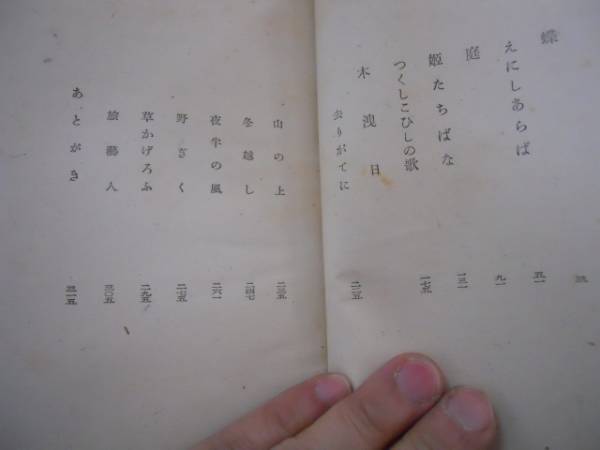 蝶
えにしあらば 五一
庭 九一
姫たちばな 一三一
つくしこひしの歌 一七五
木洩日
去りがてに 二一五
山の上 二三五
冬越し 二四七
夜半の風 二六一
野ぎく 二七五
草かげろふ 二九五
旅藝人 三〇五
あとがき 三一五